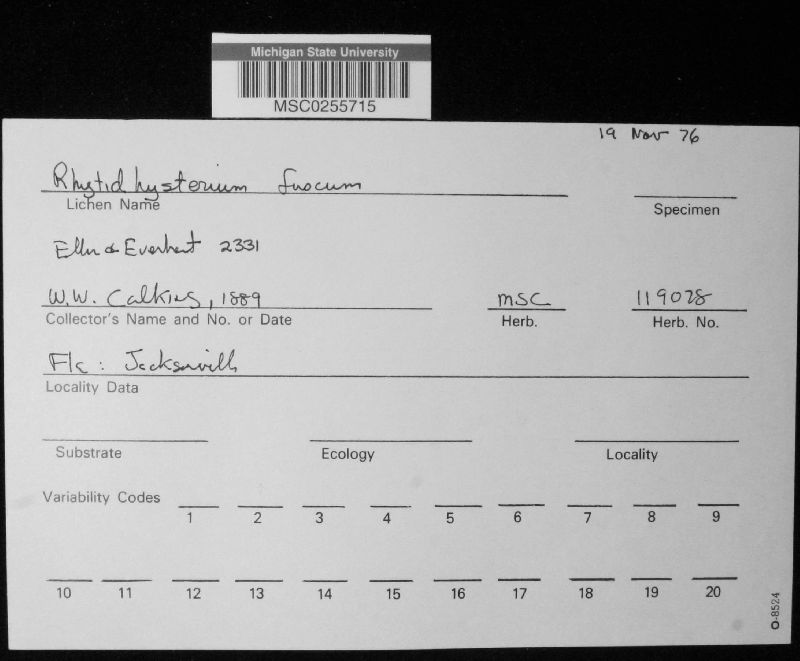 Michigan State University
MSC0255715
19 Nov 76
Rhytidhysterium fuscum
Lichen Name
Specimen
Ellis & Everhart 2331
W.W. Calkins, 1889 MSC 119028
Collector's Name and No. or Date Herb. Herb. No.
Fla: Jacksonville
Locality Data
Substrate Ecology Locality
Variability Codes
1 2 3 4 5 6 7 8 9
10 11 12 13 14 15 16 17 18 19 20
O-8524